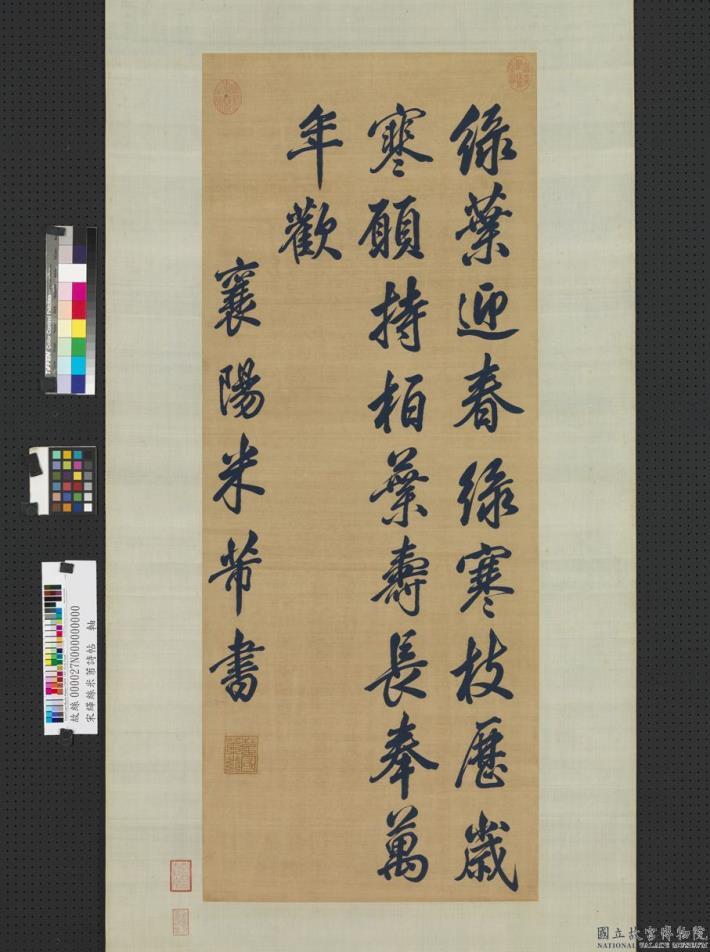 綠葉迎春綠寒枝歷歲
寒願持柏葉壽長奉萬
年歡
襄陽米芾書
故絲000027N000000000
宋緙絲米芾詩帖 軸
國立故宮博物院
NATIONAL PALACE MUSEUM